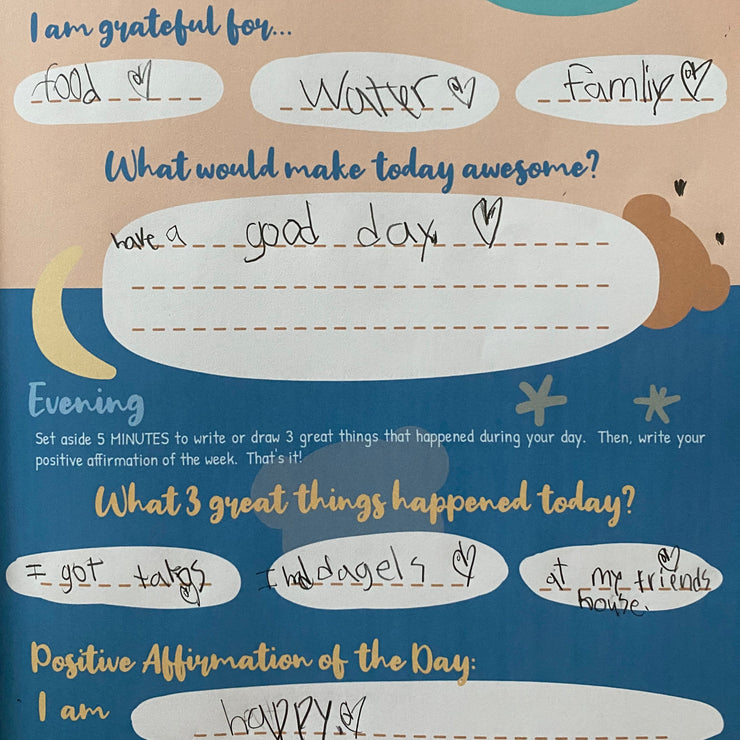 I am grateful for...
food Watter famliy
What would make today awesome?
have a good day
Evening
Set aside 5 MINUTES to write or draw 3 great things that happened during your day. Then, write your
positive affirmation of the week. That's it!
What 3 great things happened today?
I got takis I had dagels at my friends
house.
Positive Affirmation of the Day:
I am happy.